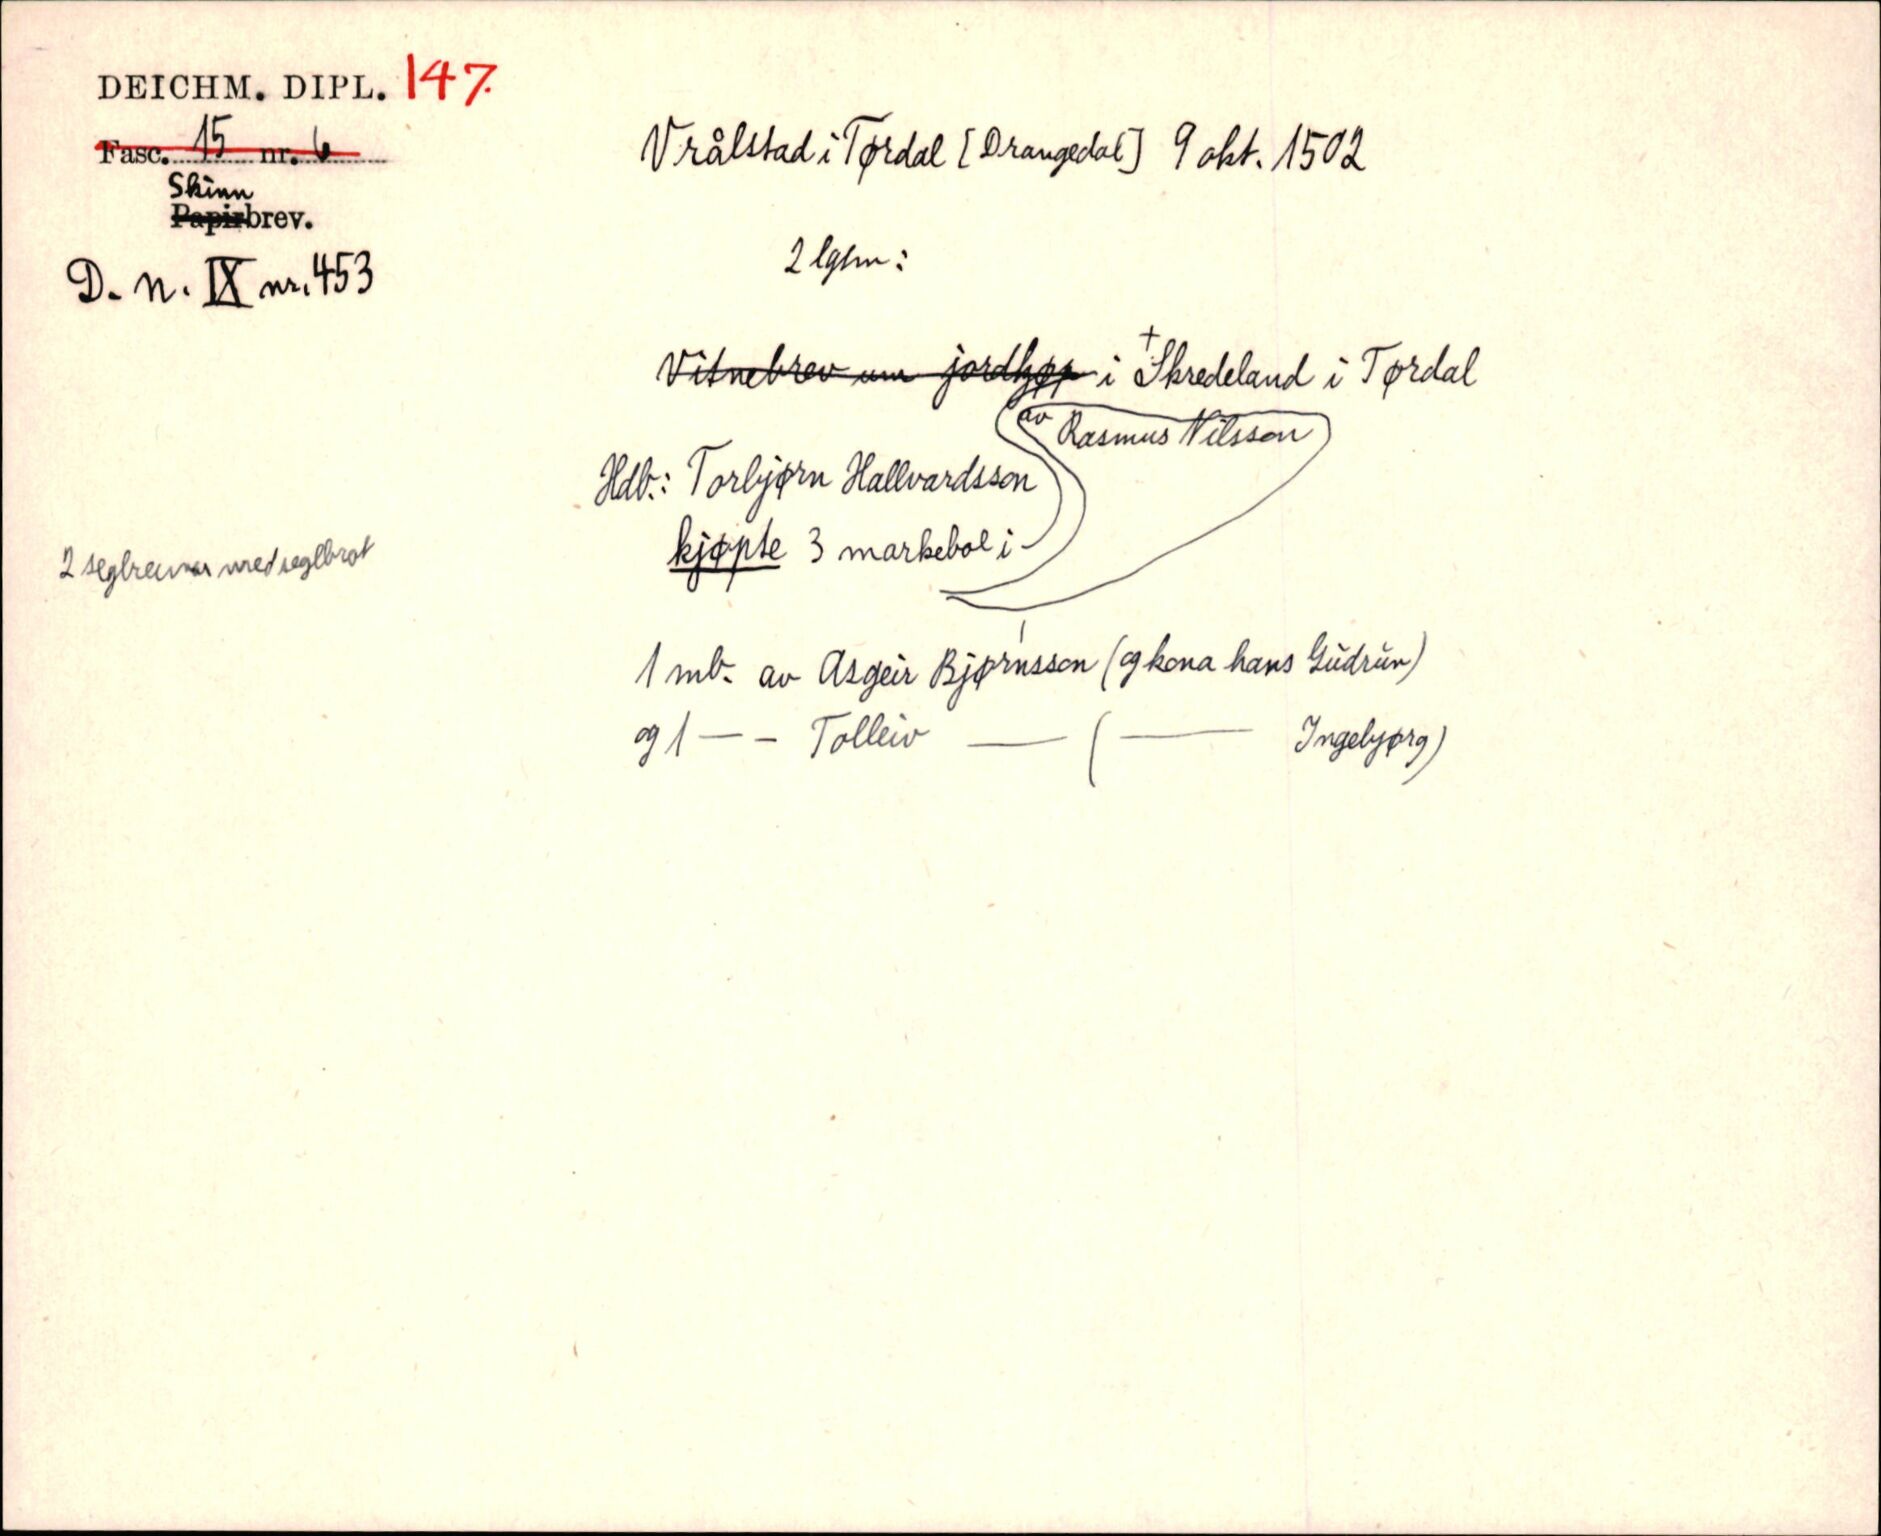 DEICHM. DIPL. 147.
Fasc. 15 nr. 6
Skinn
Papirbrev.
D. N. IX nr. 453
Vrålstad i Tørdal [Drangedal] 9 okt. 1502
2 lgrm:
Vitnebrev um jordkjøp i + Skredeland i Tørdal
av Rasmus Nilsson
Hdb.: Torbjørn Hallvardsson
kjøpte 3 markebol i
2 seglreimar med seglbrot
1 mb. av Asgeir Bjørnsson (og kona hans Gudrun)
og 1 — – Tolleiv — ( — Ingebjørg)